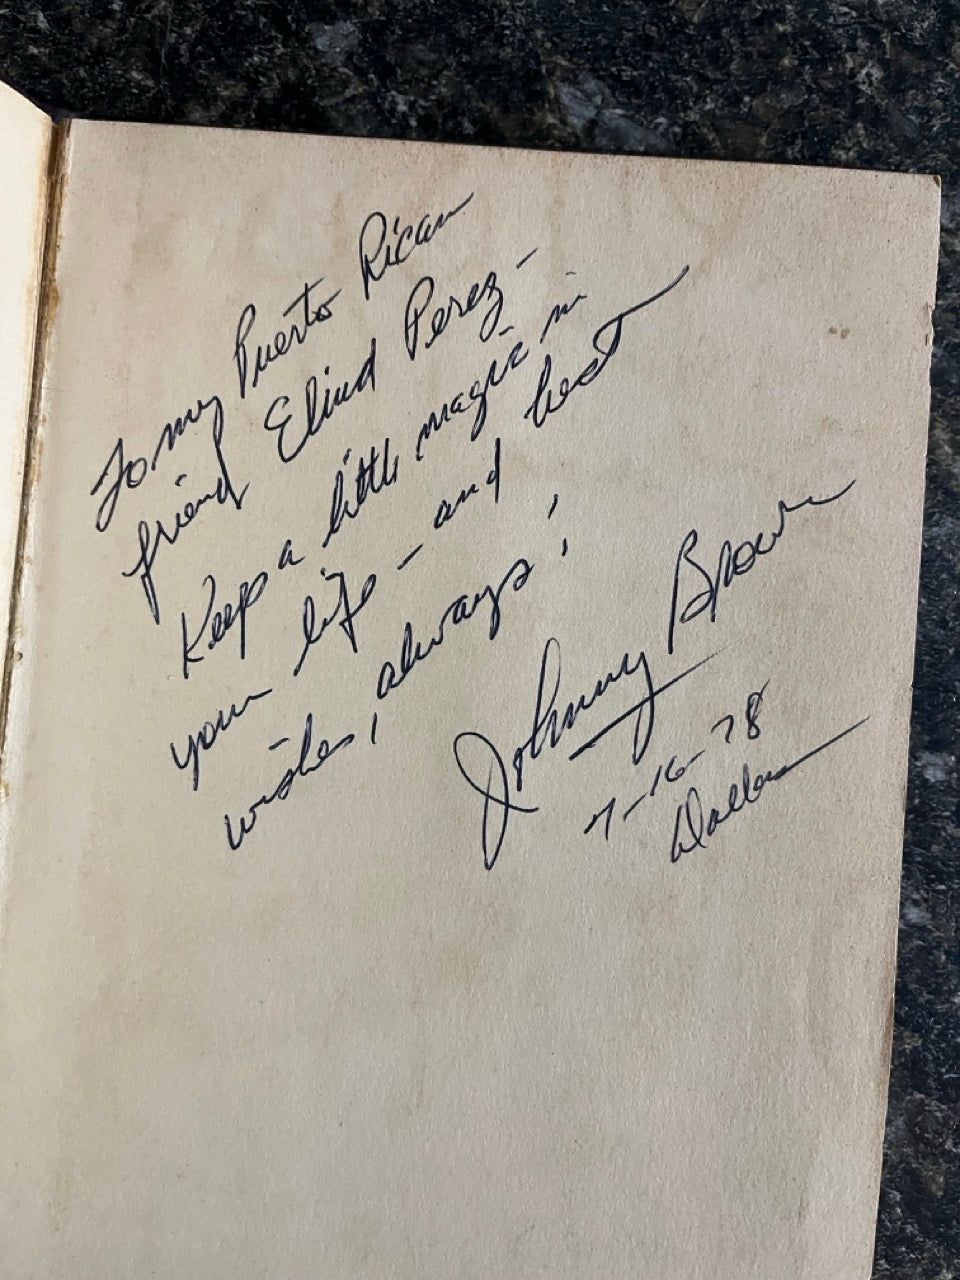 To my Puerto Rican
friend Eliud Perez -
Keep a little magic in
your life - and best
wishes, always!
Johnny Brown
7-16-78
Dallas